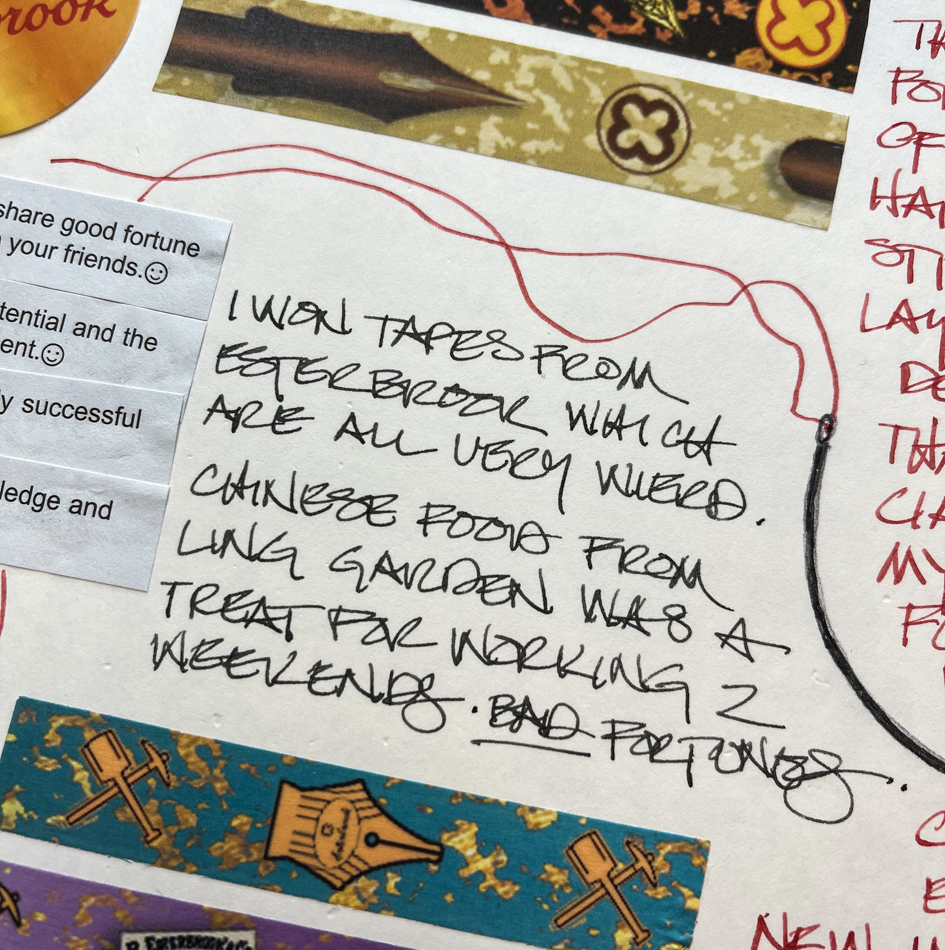 rook
share good fortune
your friends.☺
tential and the
ent.☺
y successful
ledge and
I WON TAPES FROM
ESTERBROOK WHICH
ARE ALL VERY WIERD.
CHINESE FOOD FROM
LING GARDEN WAS A
TREAT FOR WORKING 2
WEEKENDS. BAD FORTUNES.
TH
OF
HA
STY
LAY
DE
THA
CHA
MY
FO
C
E
NEW
R. ESTERBROOK & CO